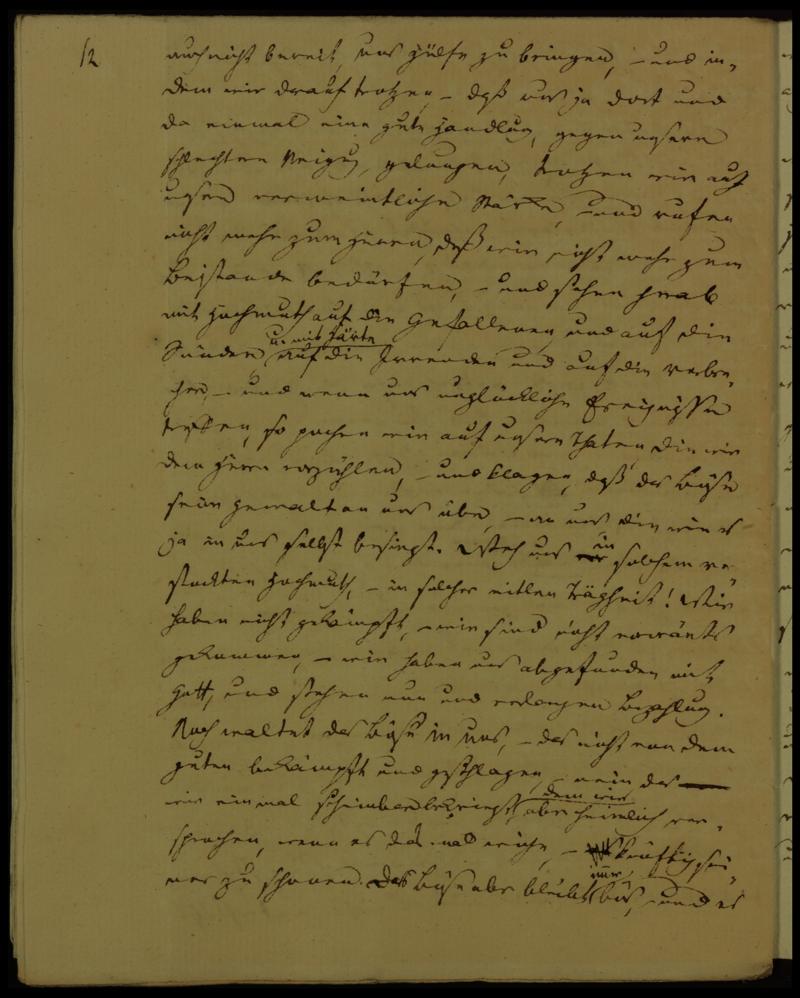 12
auch nicht bereit, uns Hülfe zu bringen, – und in-
dem wir darauf trotzen, – daß uns ja dort und
da einmal eine gute Handlung, gegen unsern
schlechten Neigung, gelungen, trotzen wir auf
unsere vermeintliche Stärke, – und rufen
nicht mehr zum Herrn, daß wir nicht mehr zum
Beistande bedürfen, – und sehen herab
mit Hochmuth auf den Gefallenen, und auf die
u. mit Härte
Sünder, auf die Irrenden und auf die verbre-
cher, – und wenn uns unglückliche Ereignisse
treffen, so pochen wir auf unsern Thaten, die wir
dem Herrn vorzählen, – und klagen, daß das Böse
seine gewalt an uns übe, – an uns die wir es
ja in uns selbst besiegt. Weh uns in solchem ver-
stockten Hochmuth, – in solcher eitlen Trägheit! Wir
haben nicht gekämpft, – wir sind nicht vorwärts
gekommen, – wir haben uns abgefunden mit
Gott, und stehen nun und verlangen Bezahlung.
Noch waltet das Böse in uns, – das nicht von dem
guten bekämpft und geschlagen, – nein das
dem wir
wir einmal scheinbar bekriegt, aber heimlich ver-
sprochen, wenn es das mal weiche, – künftig sei-
nur,
ner zu schonen. Das Böse aber bleibt bös, – und es